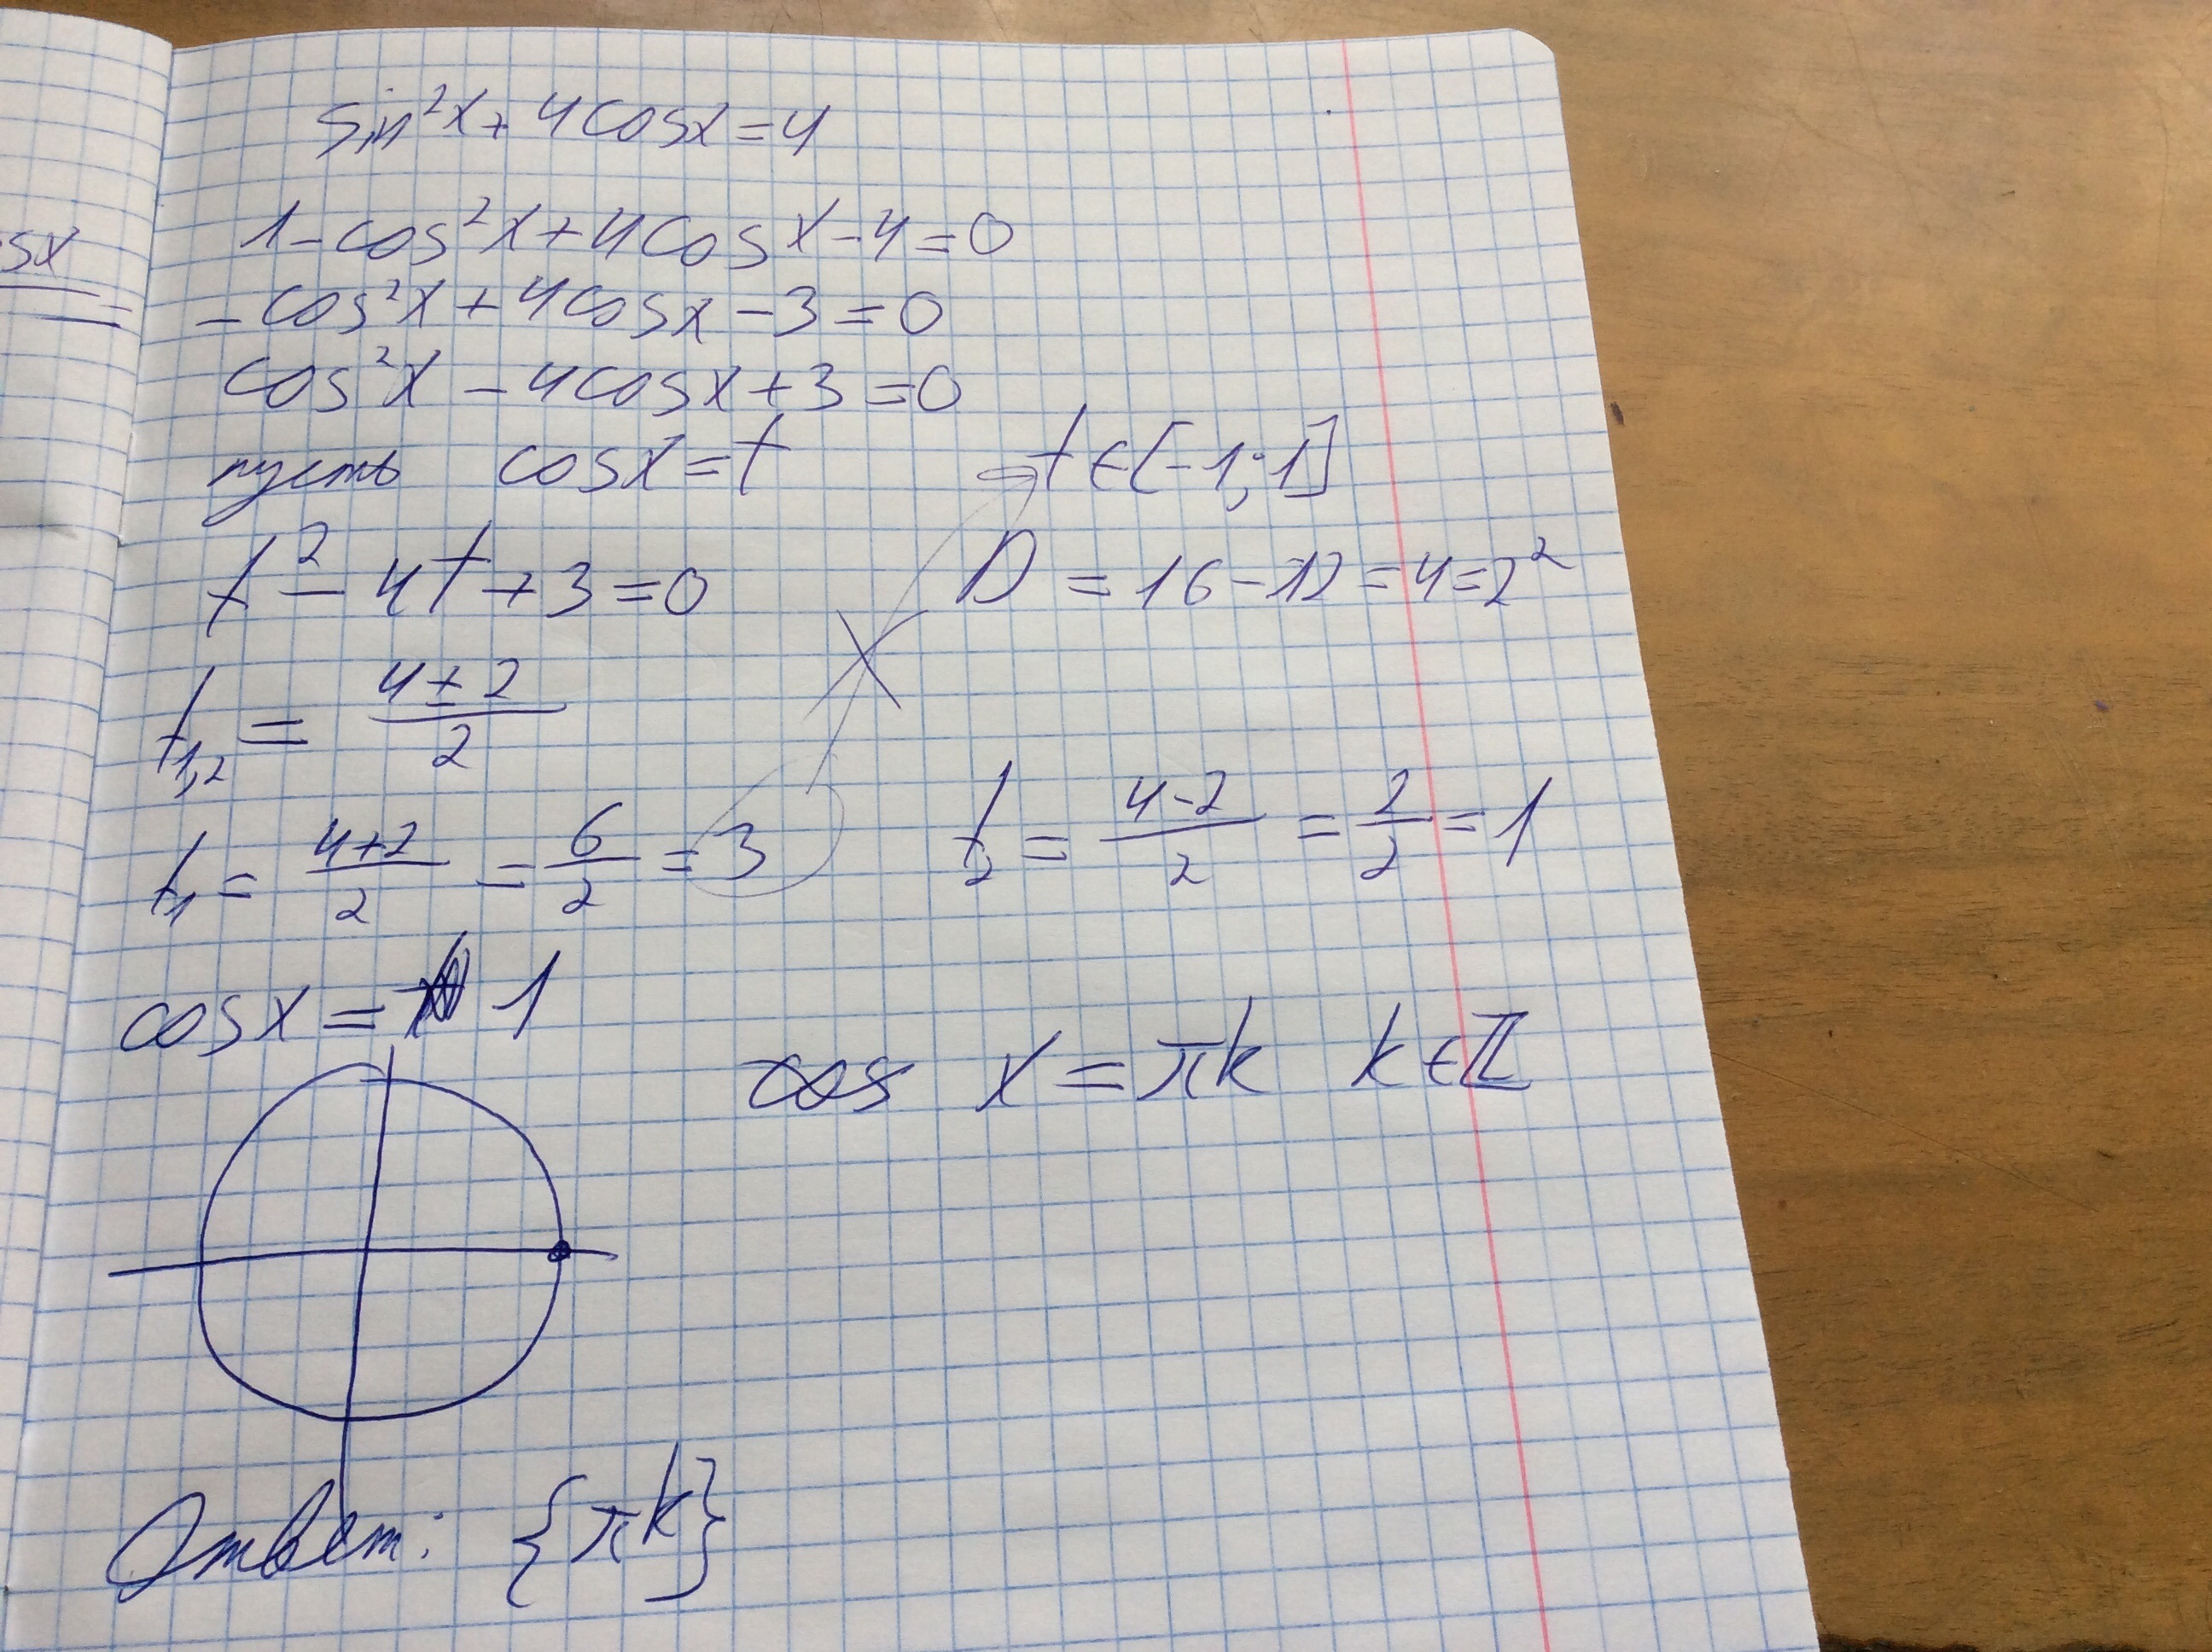 sin²x + 4cosx = 4
1 - cos²x + 4cosx - 4 = 0
sx
- cos²x + 4cosx - 3 = 0
cos²x - 4cosx + 3 = 0
пусть cosx = t t ∈ [-1; 1]
t² - 4t + 3 = 0 D = 16 - 12 = 4 = 2²
t₁,₂ = (4 ± 2)/2
t₁ = (4+2)/2 = 6/2 = 3 t₂ = (4-2)/2 = 2/2 = 1
cosx = 1
cos x = πk k ∈ ℤ
Ответ: {πk}